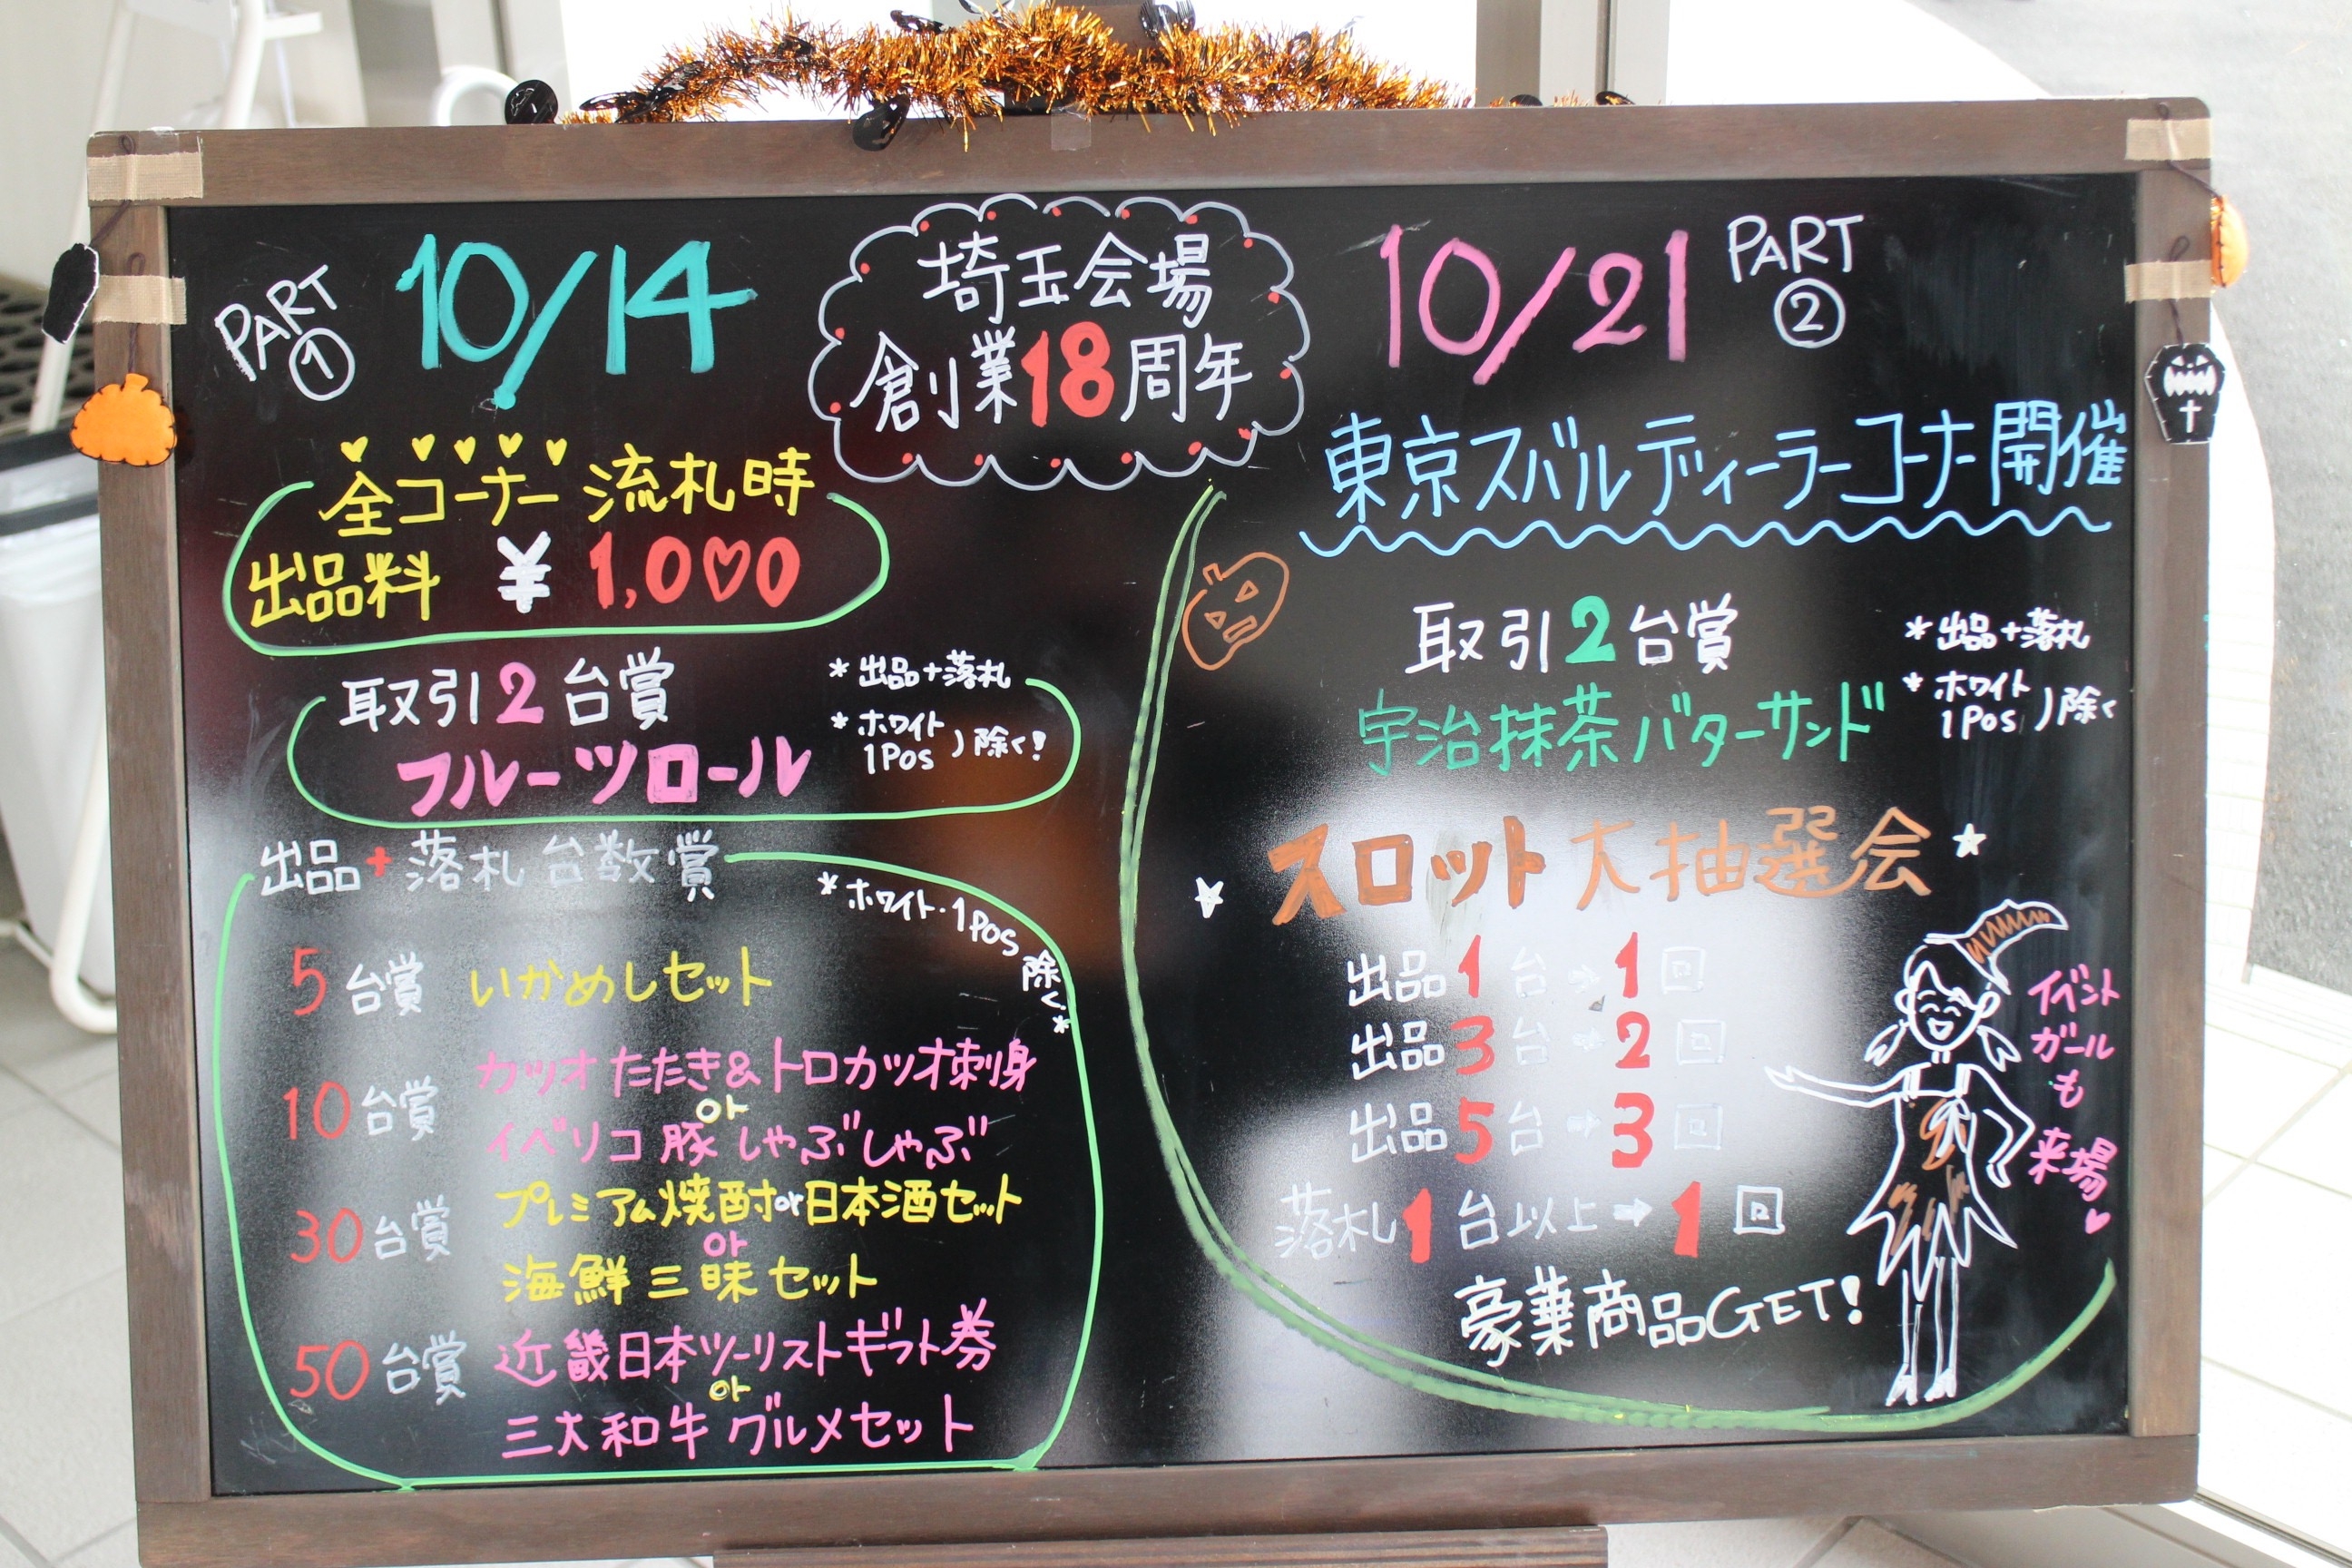 埼玉会場
創業18周年
PART
①
10/14
全コーナー 流札時
出品料 ¥ 1,000
取引2台賞
フルーツロール
*出品+落札
*ホワイト
1Pos )除く!
出品+落札台数賞
*ホワイト・1Pos 除く*
5台賞 いかめしセット
10台賞 カツオたたき&トロカツオ刺身
or
イベリコ豚しゃぶしゃぶ
30台賞 プレミアム焼酎or日本酒セット
or
海鮮三昧セット
50台賞 近畿日本ツーリストギフト券
or
三大和牛グルメセット
10/21
PART
②
東京スバルディーラーコーナー開催
取引2台賞
宇治抹茶バターサンド
*出品+落札
*ホワイト
1Pos )除く
スロット大抽選会
出品1台→1回
出品3台→2回
出品5台→3回
落札1台以上→1回
豪華商品GET!
イベント
ガール
も
来場